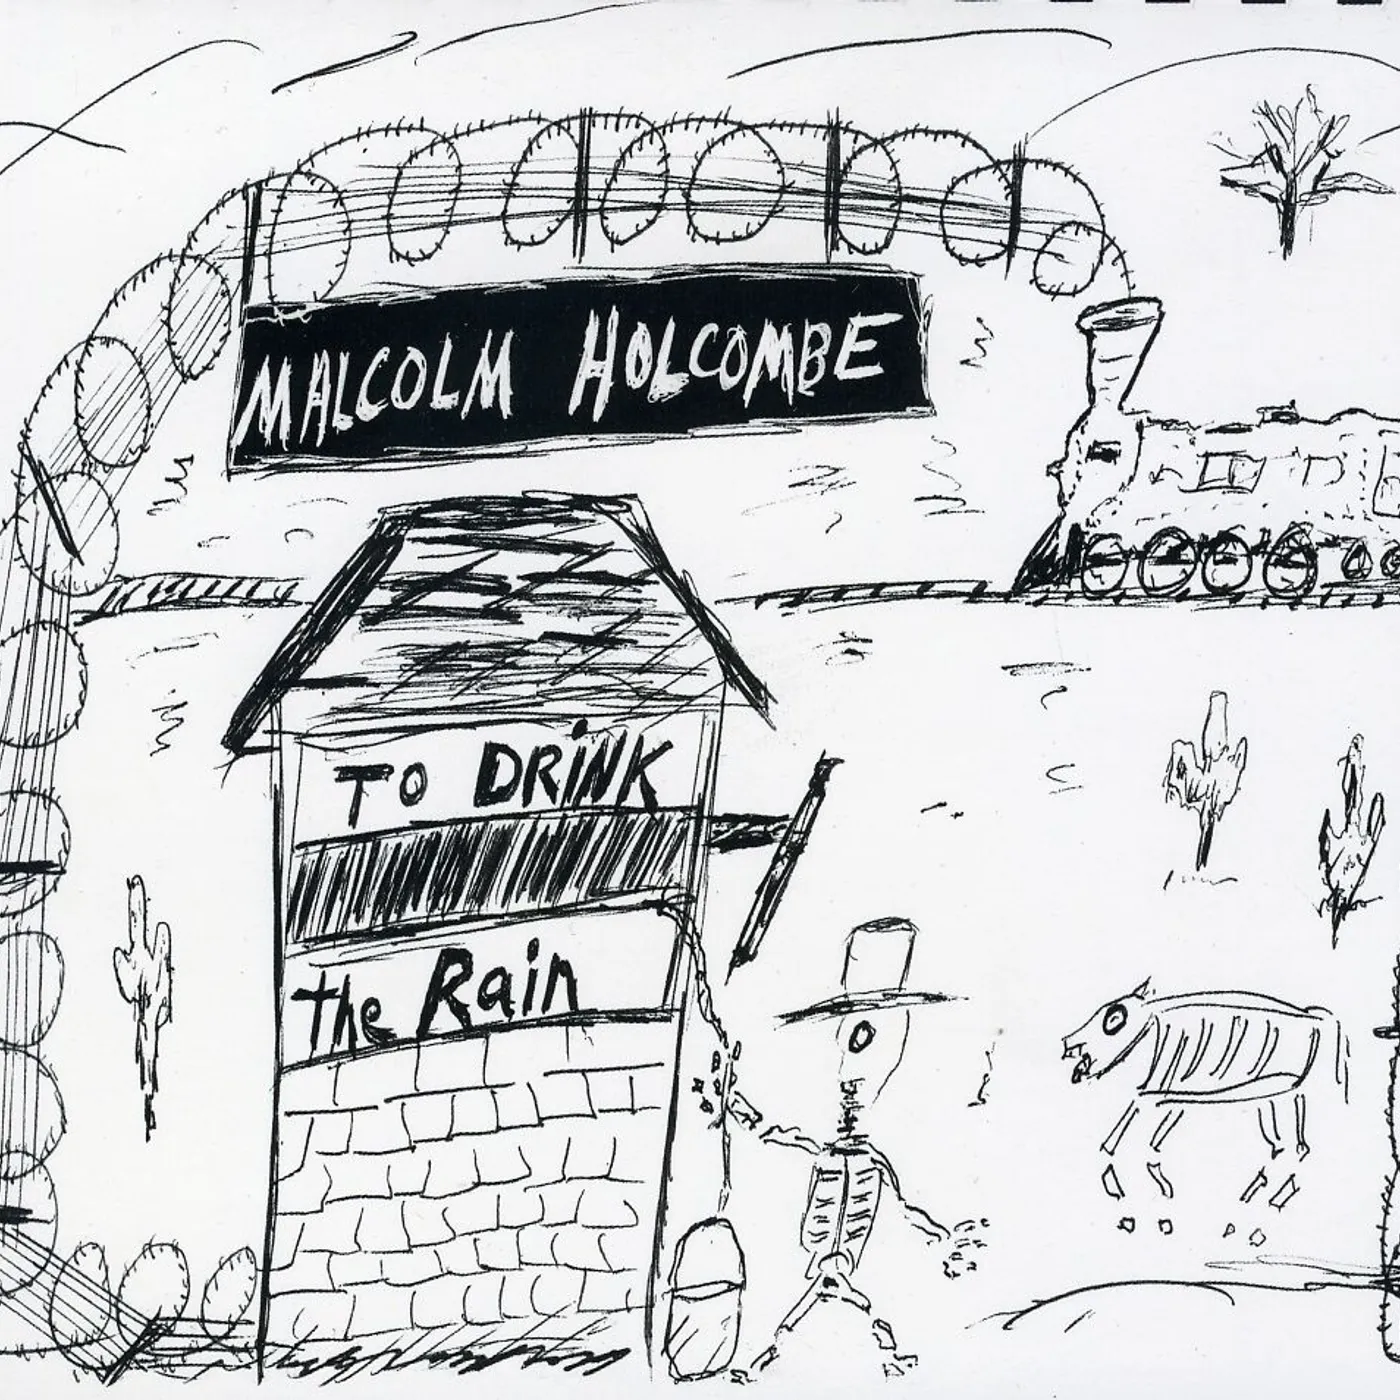 MALCOLM HOLCOMBE
TO DRiNK
the Rain